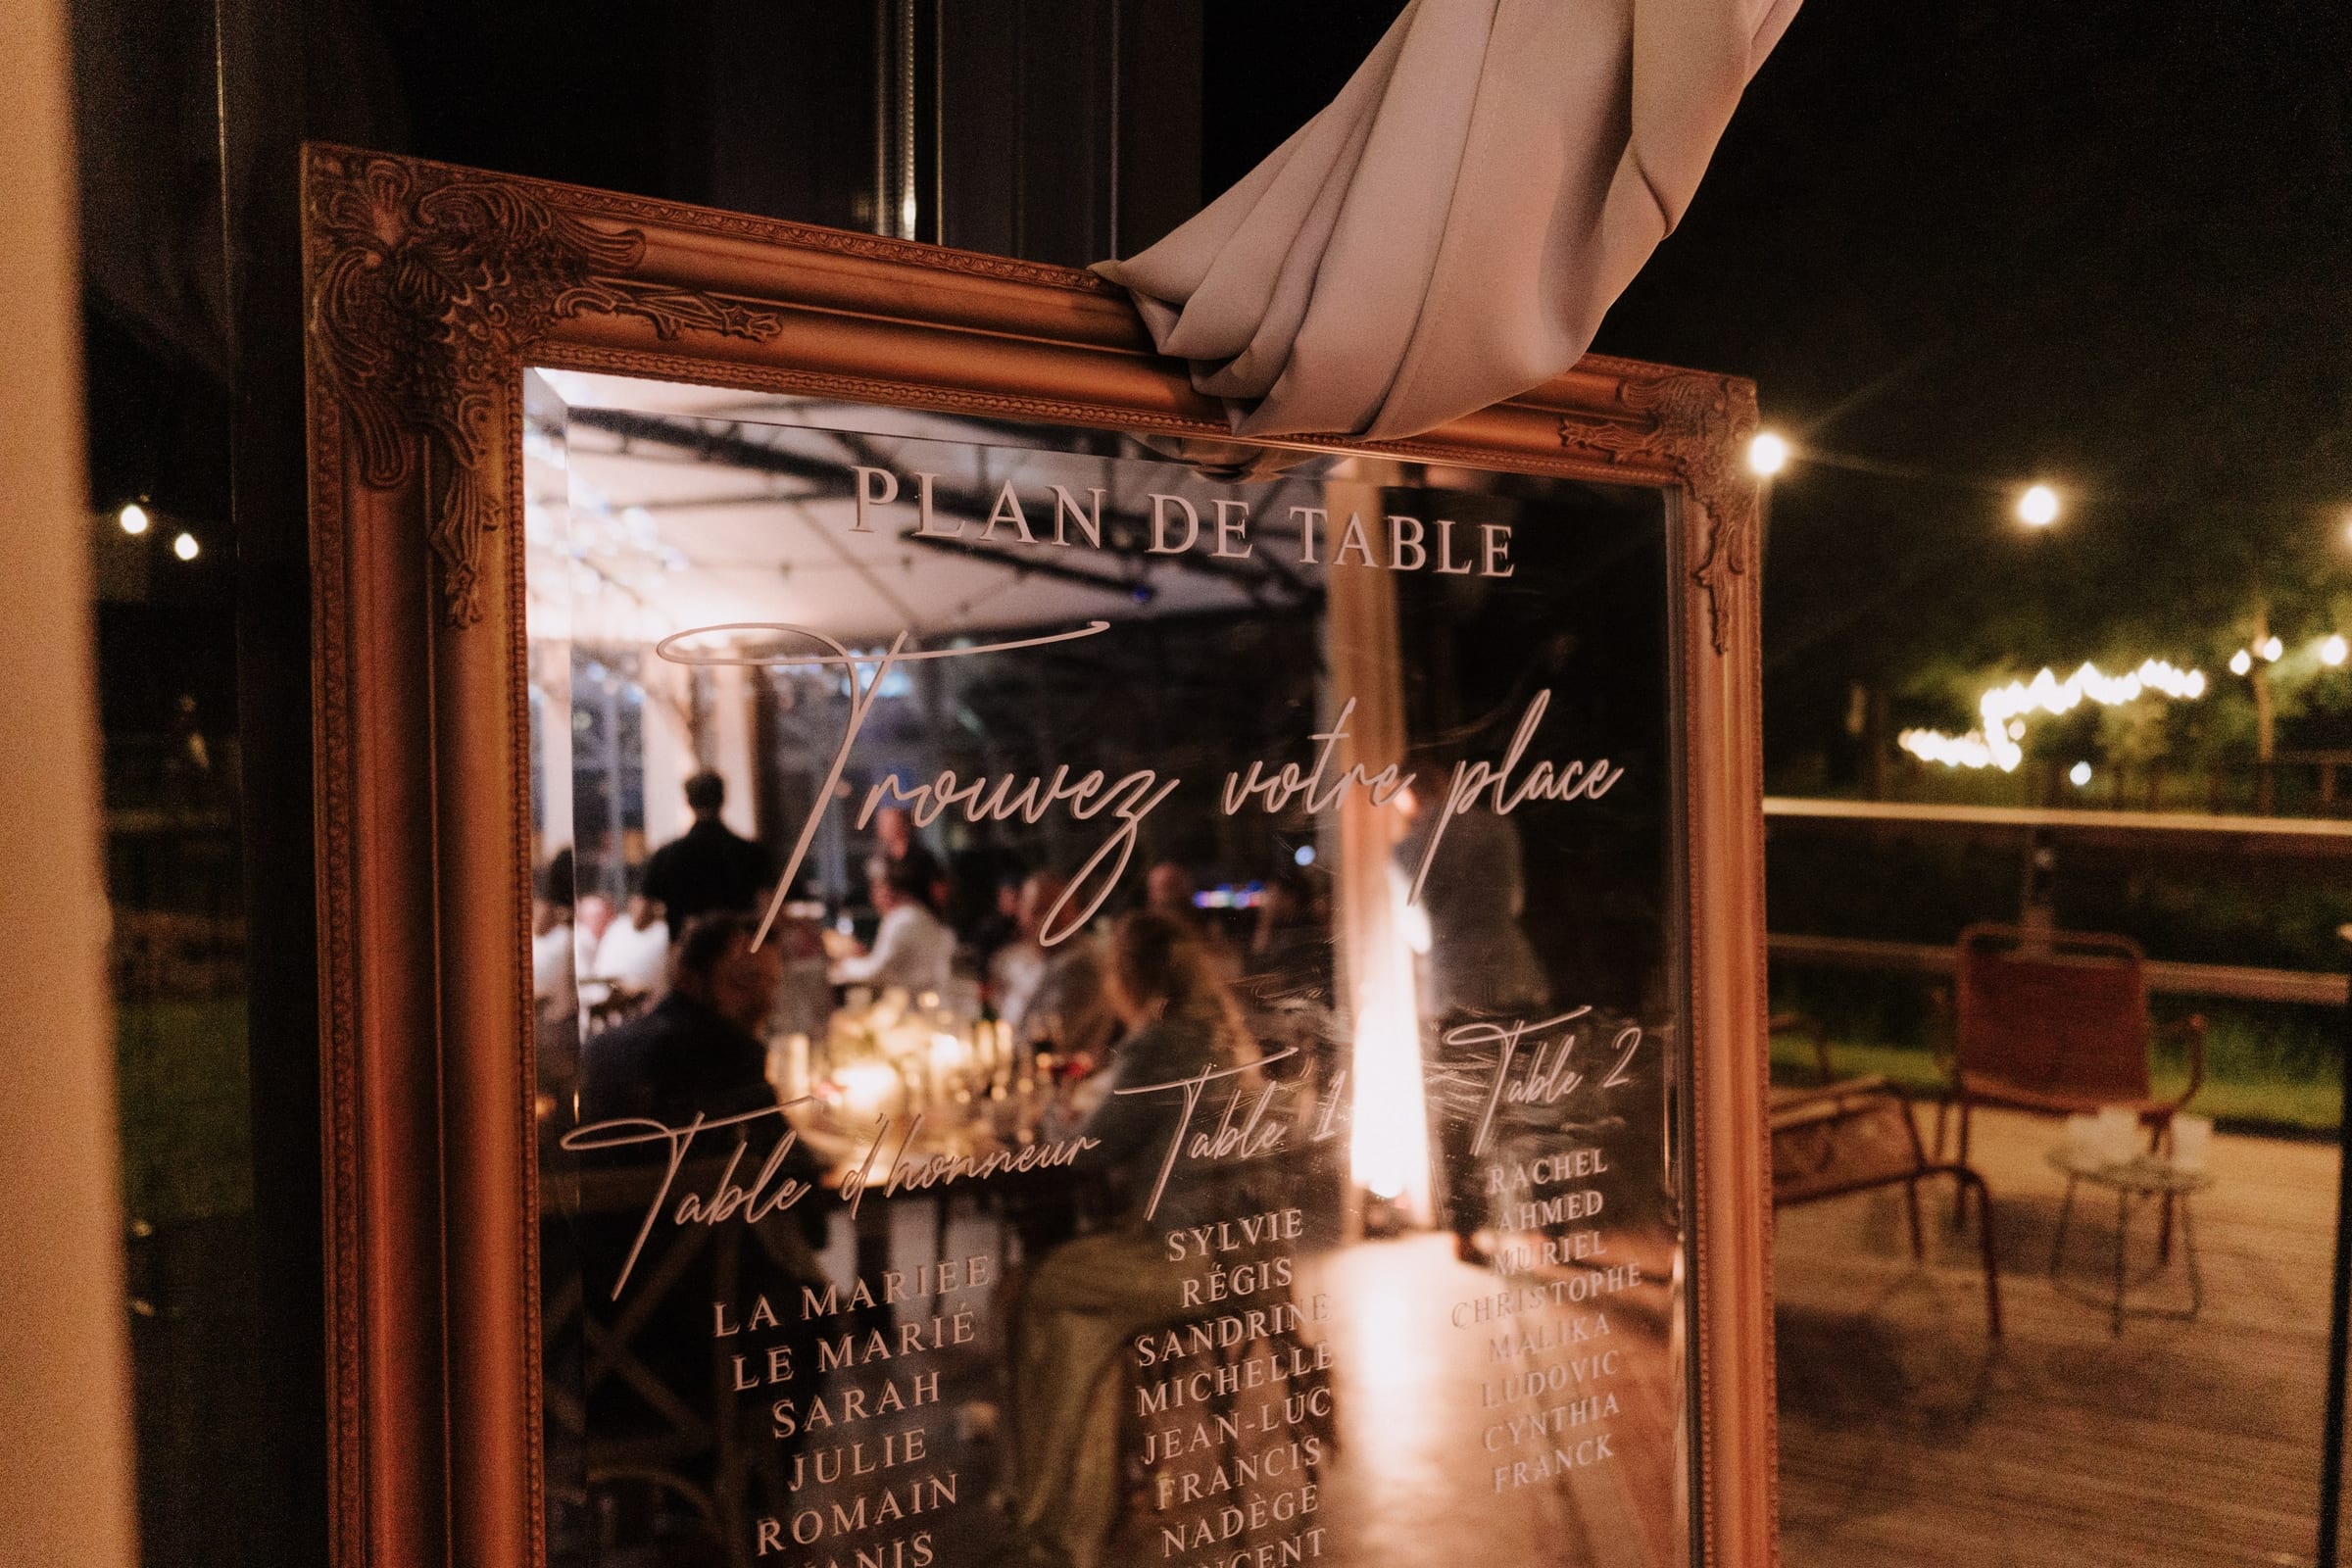 PLAN DE TABLE
Trouvez votre place
Table d'honneur
LA MARIEE
LE MARIÉ
SARAH
JULIE
ROMAIN
Table 1
SYLVIE
RÉGIS
SANDRINE
MICHELLE
JEAN-LUC
FRANCIS
NADÈGE
Table 2
RACHEL
AHMED
MURIEL
CHRISTOPHE
MALIKA
LUDOVIC
CYNTHIA
FRANCK